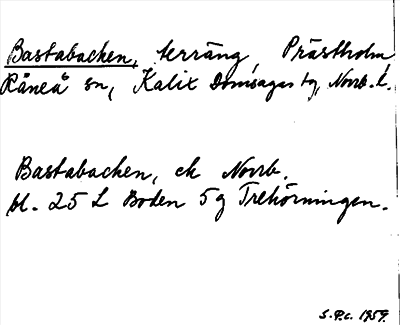 Bastabacken, terräng, Prästholm
Råneå sn, Kalix Domsagas tg, Norrb. l.
Bastabacken, ek Norrb.
bl. 25 L Boden 5g Trehörningen.
S.P.c. 1959.